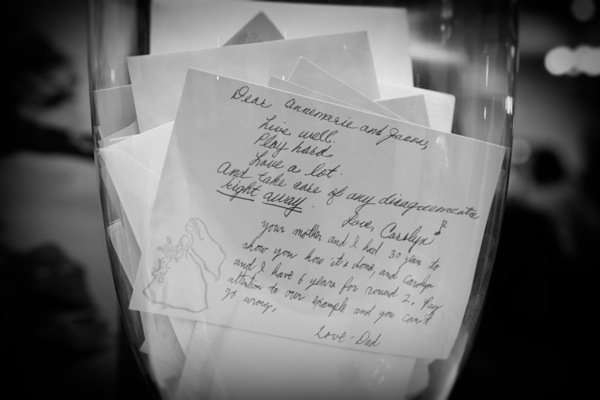 Dear Annemarie and James,
Live well.
Play hard.
Love a lot.
And take care of any disagreements
right away.
Love, Carolyn
your mother and I had 30 years to
show you how it's done, and Carolyn
and I have 6 years for round 2. Pay
attention to our example and you can't
go wrong,
Love - Dad